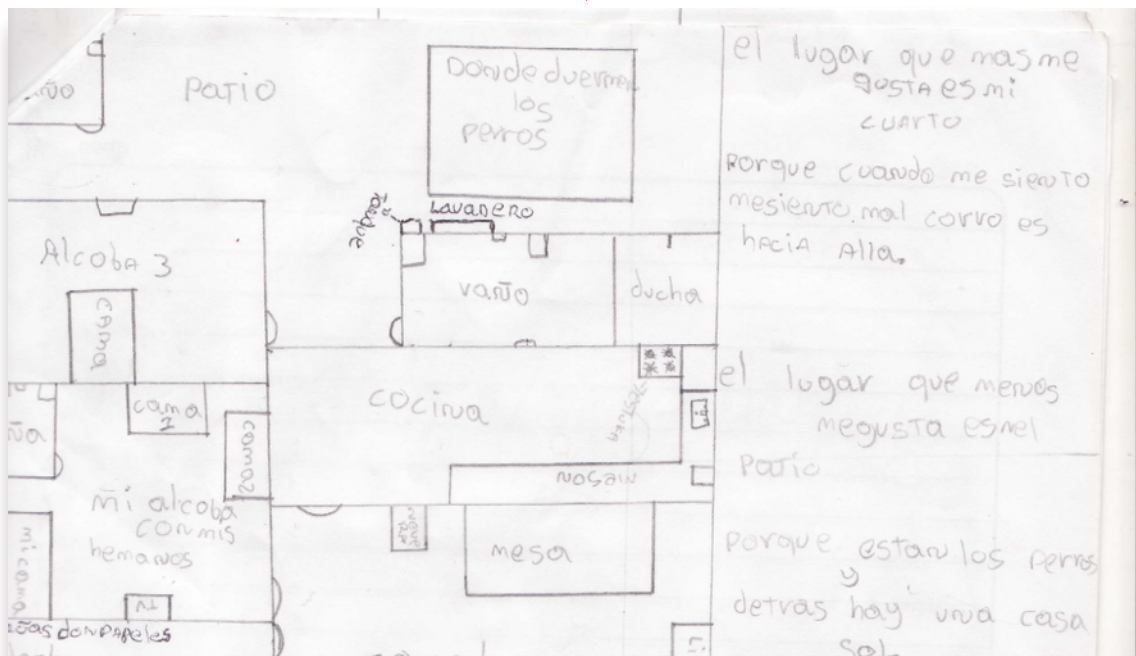 Patio
Donde duermen
los
perros
Tanque
Lavadero
Alcoba 3
cama
vaño
ducha
cocina
cama
1
cama2
meson
mi alcoba
con mis
hemanos
mi cama
TV
mesa
el lugar que mas me
gusta es mi
cuarto
Porque cuando me siento
mesiento mal corro es
hacia Alla.
el lugar que menos
megusta esnel
Patio
porque estan los perros
y
detras hay una casa